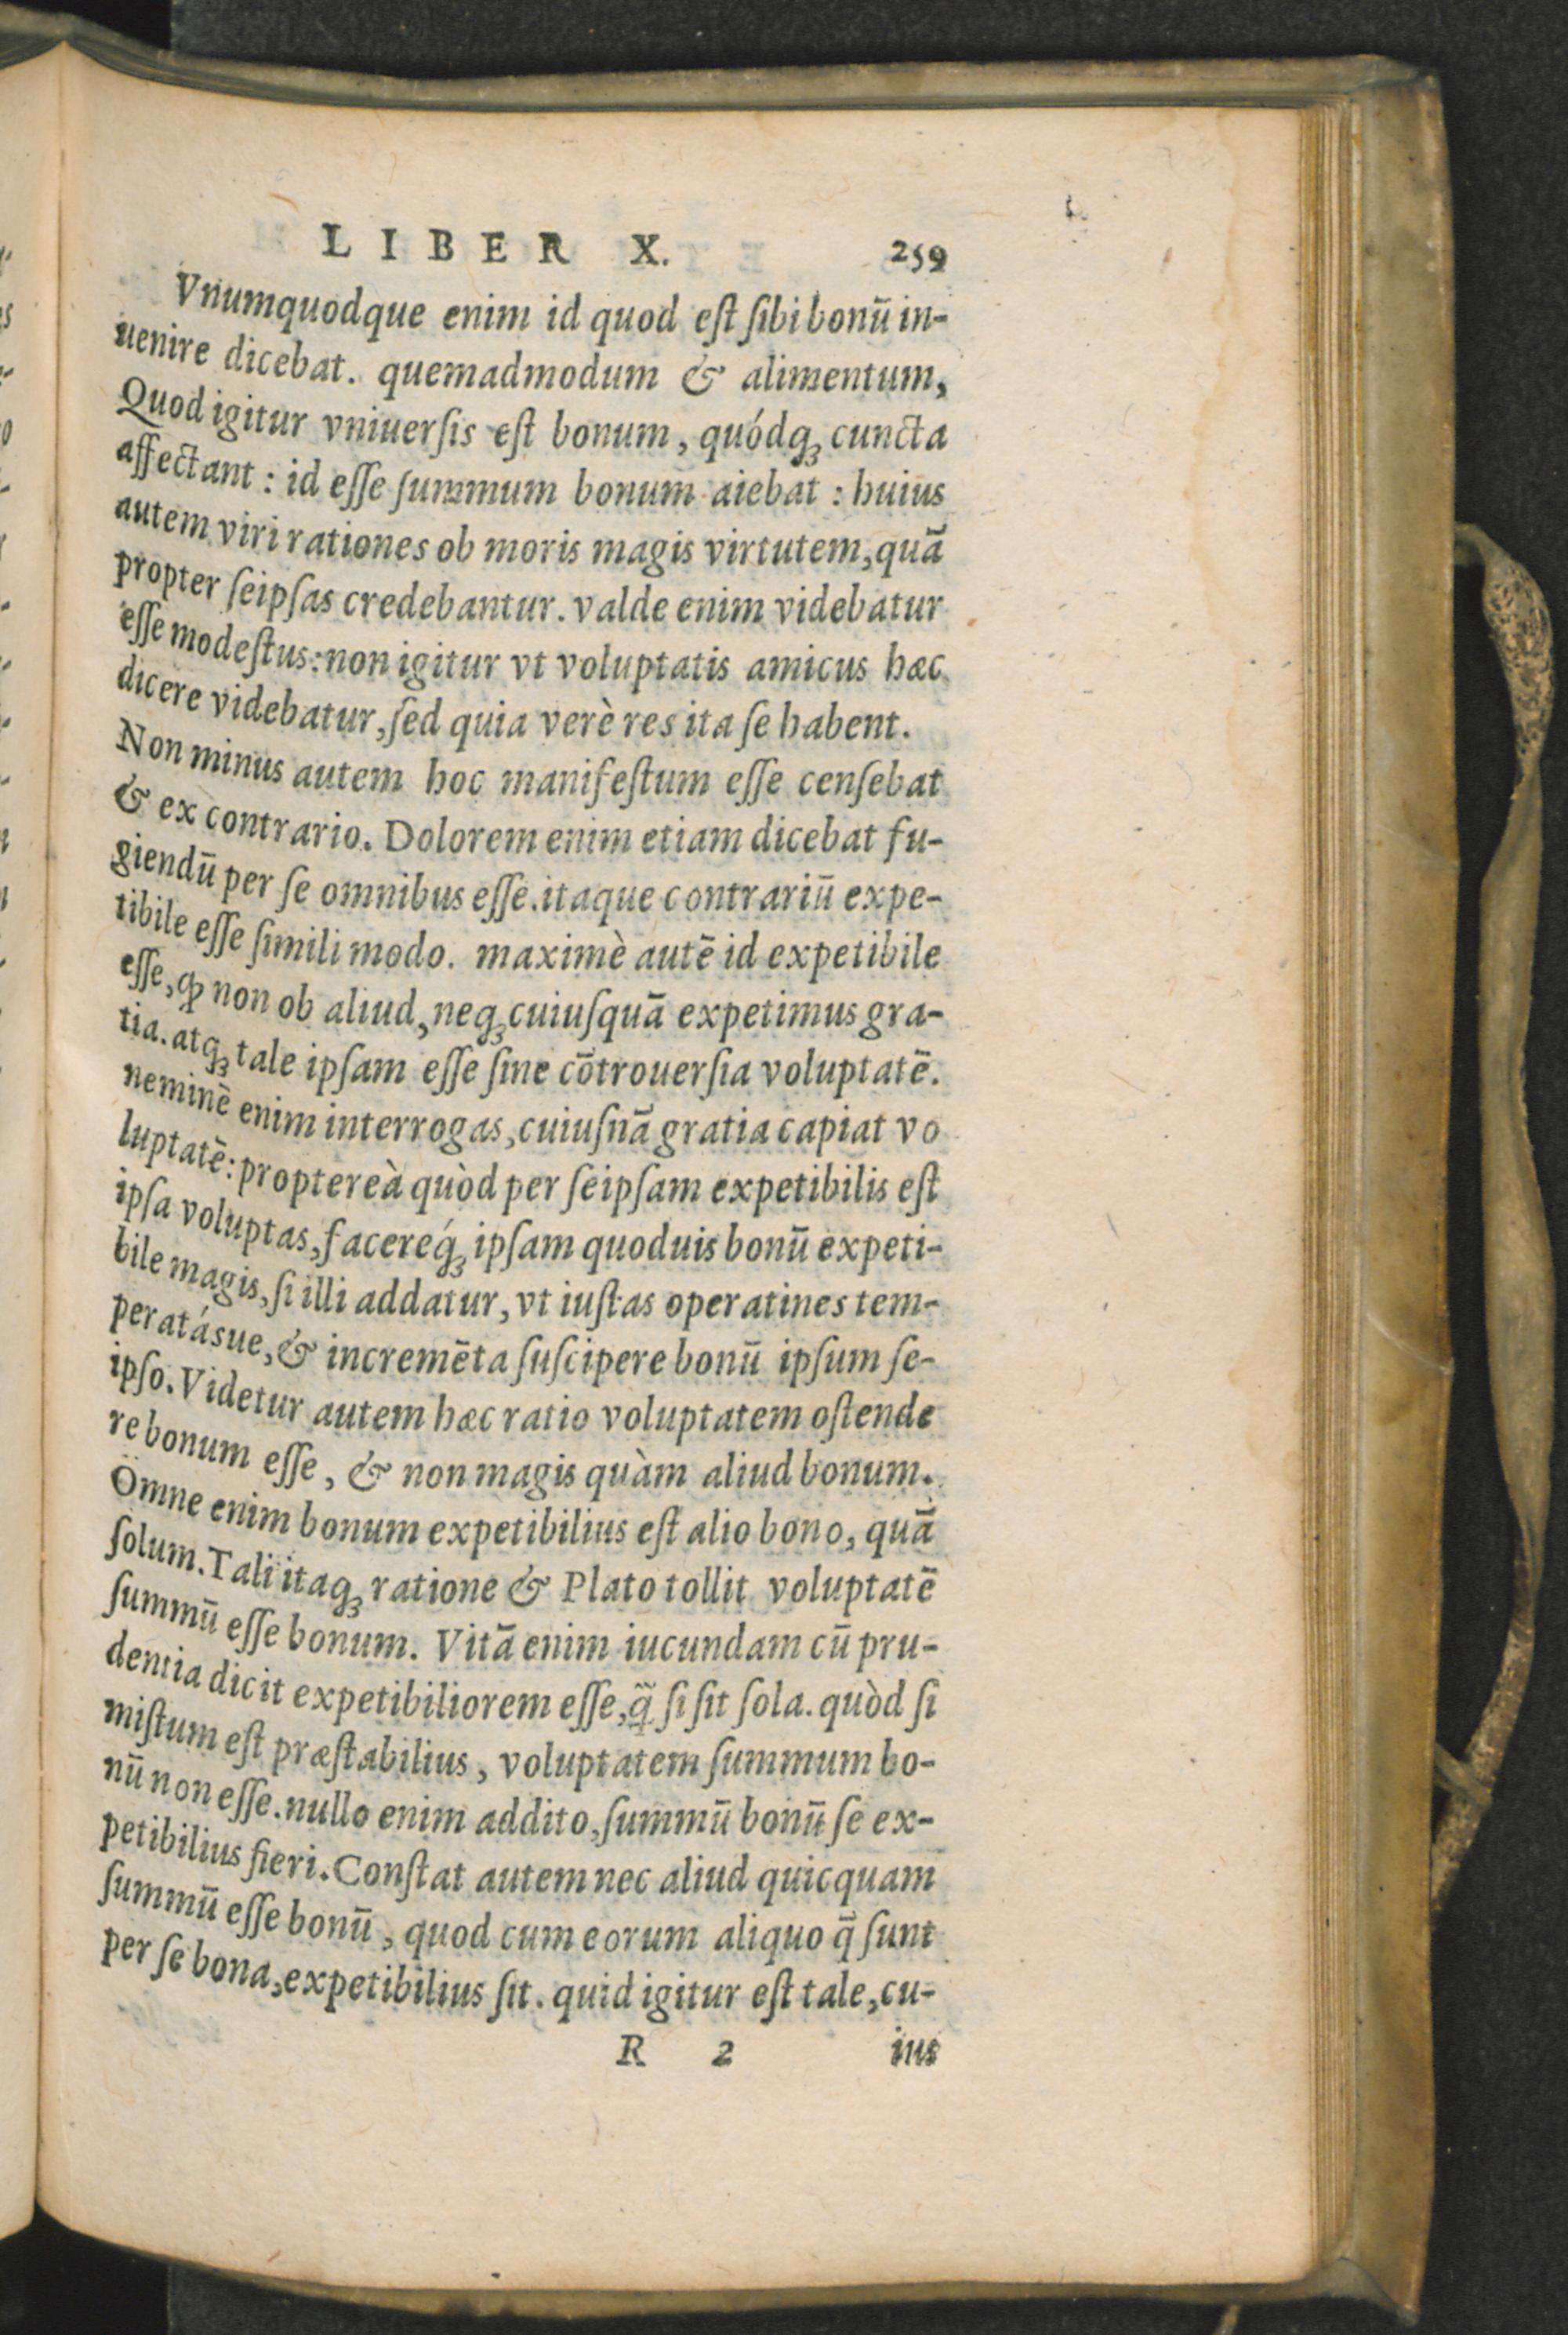 LIBER X. 259
Vnumquodque enim id quod eſt ſibi bonū in-
uenire dicebat. quemadmodum & alimentum,
Quod igitur vniuerſis eſt bonum, quódqꝫ cuncta
affectant: id eſſe ſummum bonum aiebat: huius
autem viri rationes ob moris magis virtutem, quā
propter ſeipſas credebantur. valde enim videbatur
eſſe modeſtus: non igitur vt voluptatis amicus hæc
dicere videbatur, ſed quia verè res ita ſe habent.
Non minus autem hoc manifeſtum eſſe cenſebat
& ex contrario. Dolorem enim etiam dicebat fu-
giendū per ſe omnibus eſſe. itaque contrariū expe-
tibile eſſe ſimili modo. maximè autē id expetibile
eſſe, ꝙ non ob aliud, neqꝫ cuiuſquā expetimus gra-
tia. atqꝫ tale ipſam eſſe ſine cōtrouerſia voluptatē.
neminē enim interrogas, cuiuſnā gratia capiat vo
luptatē: propterеà quòd per ſeipſam expetibilis eſt
ipſa voluptas, facereq́ꝫ ipſam quoduis bonū expeti-
bile magis, ſi illi addatur, vt iuſtas operatines tem-
peratásue, & incremēta ſuſcipere bonū ipſum ſe-
ipſo. Videtur autem hæc ratio voluptatem oſtende
re bonum eſſe, & non magis quàm aliud bonum.
Omne enim bonum expetibilius eſt alio bono, quā
ſolum. Tali itaqꝫ ratione & Plato tollit voluptatē
ſummū eſſe bonum. Vitā enim iucundam cū pru-
dentia dicit expetibiliorem eſſe, q̄̃ ſi ſit ſola. quòd ſi
miſtum eſt præſtabilius, voluptatem ſummum bo-
nū non eſſe. nullo enim addito, ſummū bonū ſe ex-
petibilius fieri. Conſtat autem nec aliud quicquam
ſummū eſſe bonū, quod cum eorum aliquo q̄ ſunt
per ſe bona, expetibilius ſit. quid igitur eſt tale, cu-
R 2 ius